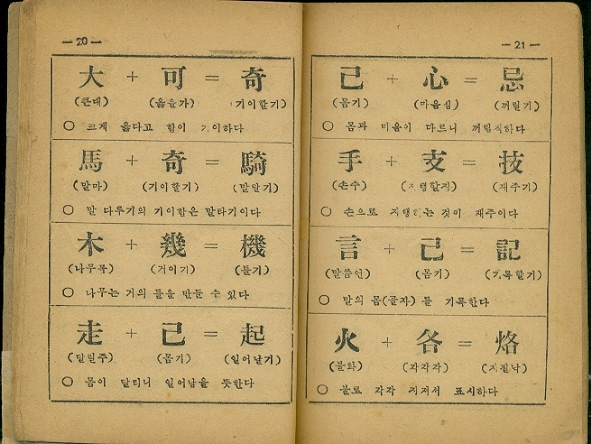 — 20 —
大 + 可 = 奇
(큰대) (옳을가) (기이할기)
○ 크게 옳다고 함이 기이하다
馬 + 奇 = 騎
(말마) (기이할기) (말탈기)
○ 말 다루기의 기이함은 말타기이다
木 + 幾 = 機
(나무목) (거이기) (틀기)
○ 나무는 거의 틀을 만들 수 있다
走 + 己 = 起
(달릴주) (몸기) (일어날기)
○ 몸이 달리니 일어남을 뜻한다
— 21 —
己 + 心 = 忌
(몸기) (마음심) (꺼릴기)
○ 몸과 마음이 다르니 꺼림직하다
手 + 支 = 技
(손수) (지탱할지) (재주기)
○ 손으로 지탱하는 것이 재주이다
言 + 己 = 記
(말씀언) (몸기) (기록할기)
○ 말의 몸(골자)를 기록한다
火 + 各 = 烙
(불화) (각각각) (지질낙)
○ 불로 각각 지저서 표시하다